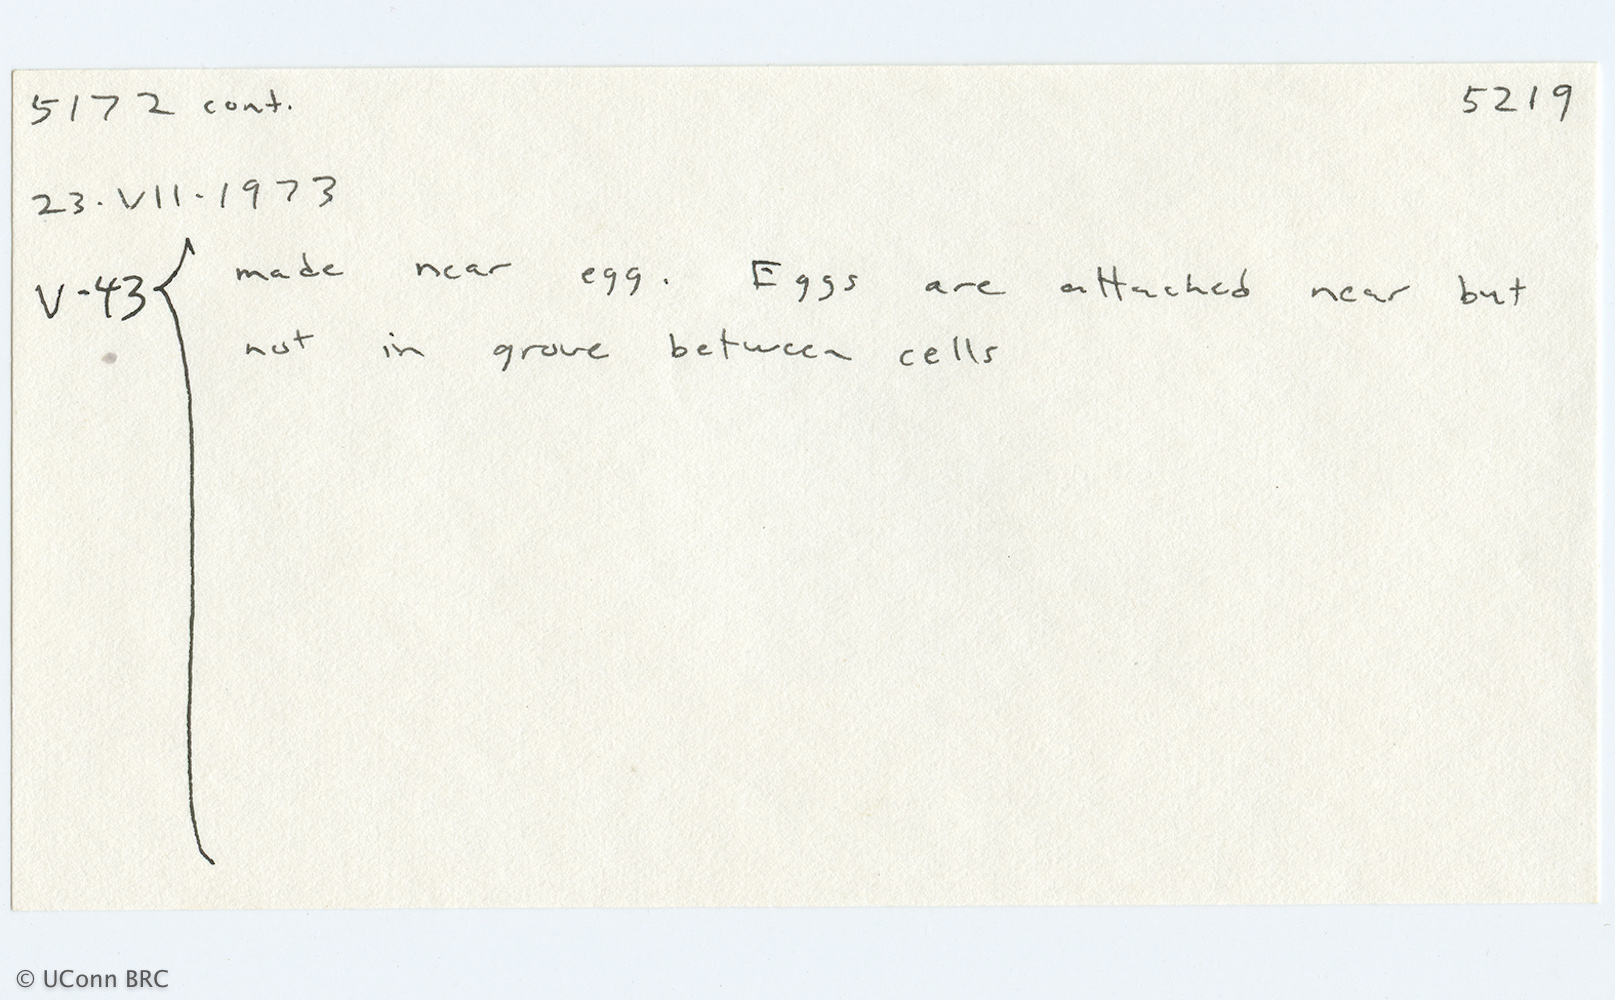 5172 cont. 5219
23·VII·1973
V-43 { made near egg. Eggs are attached near but
not in grove between cells
© UConn BRC